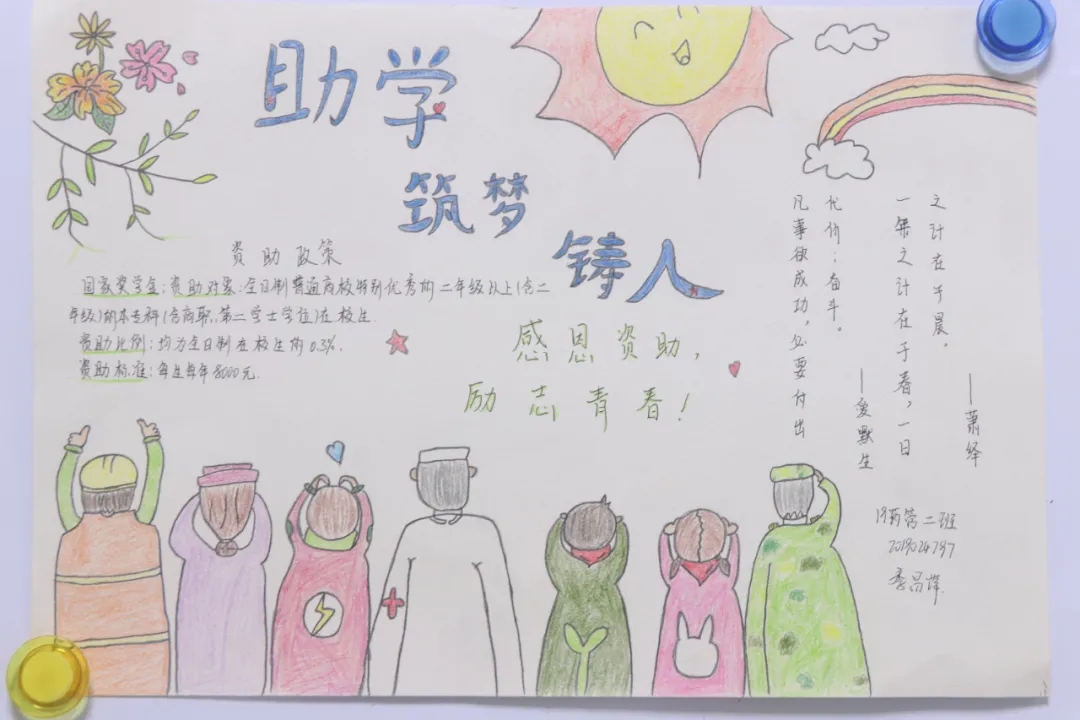 助学
筑梦
铸人
资助政策
国家奖学金：资助对象：全日制普通高校特别优秀的二年级以上(含二
年级)的本专科(含高职、第二学士学位)在校生.
资助比例：均为全日制在校生的0.3%.
资助标准：每生每年8000元.
感恩资助，
励志青春！
凡事欲成功，必要付出
代价：奋斗。
——爱默生
一年之计在于春，一日
之计在于晨。
——萧绎
19药管二班